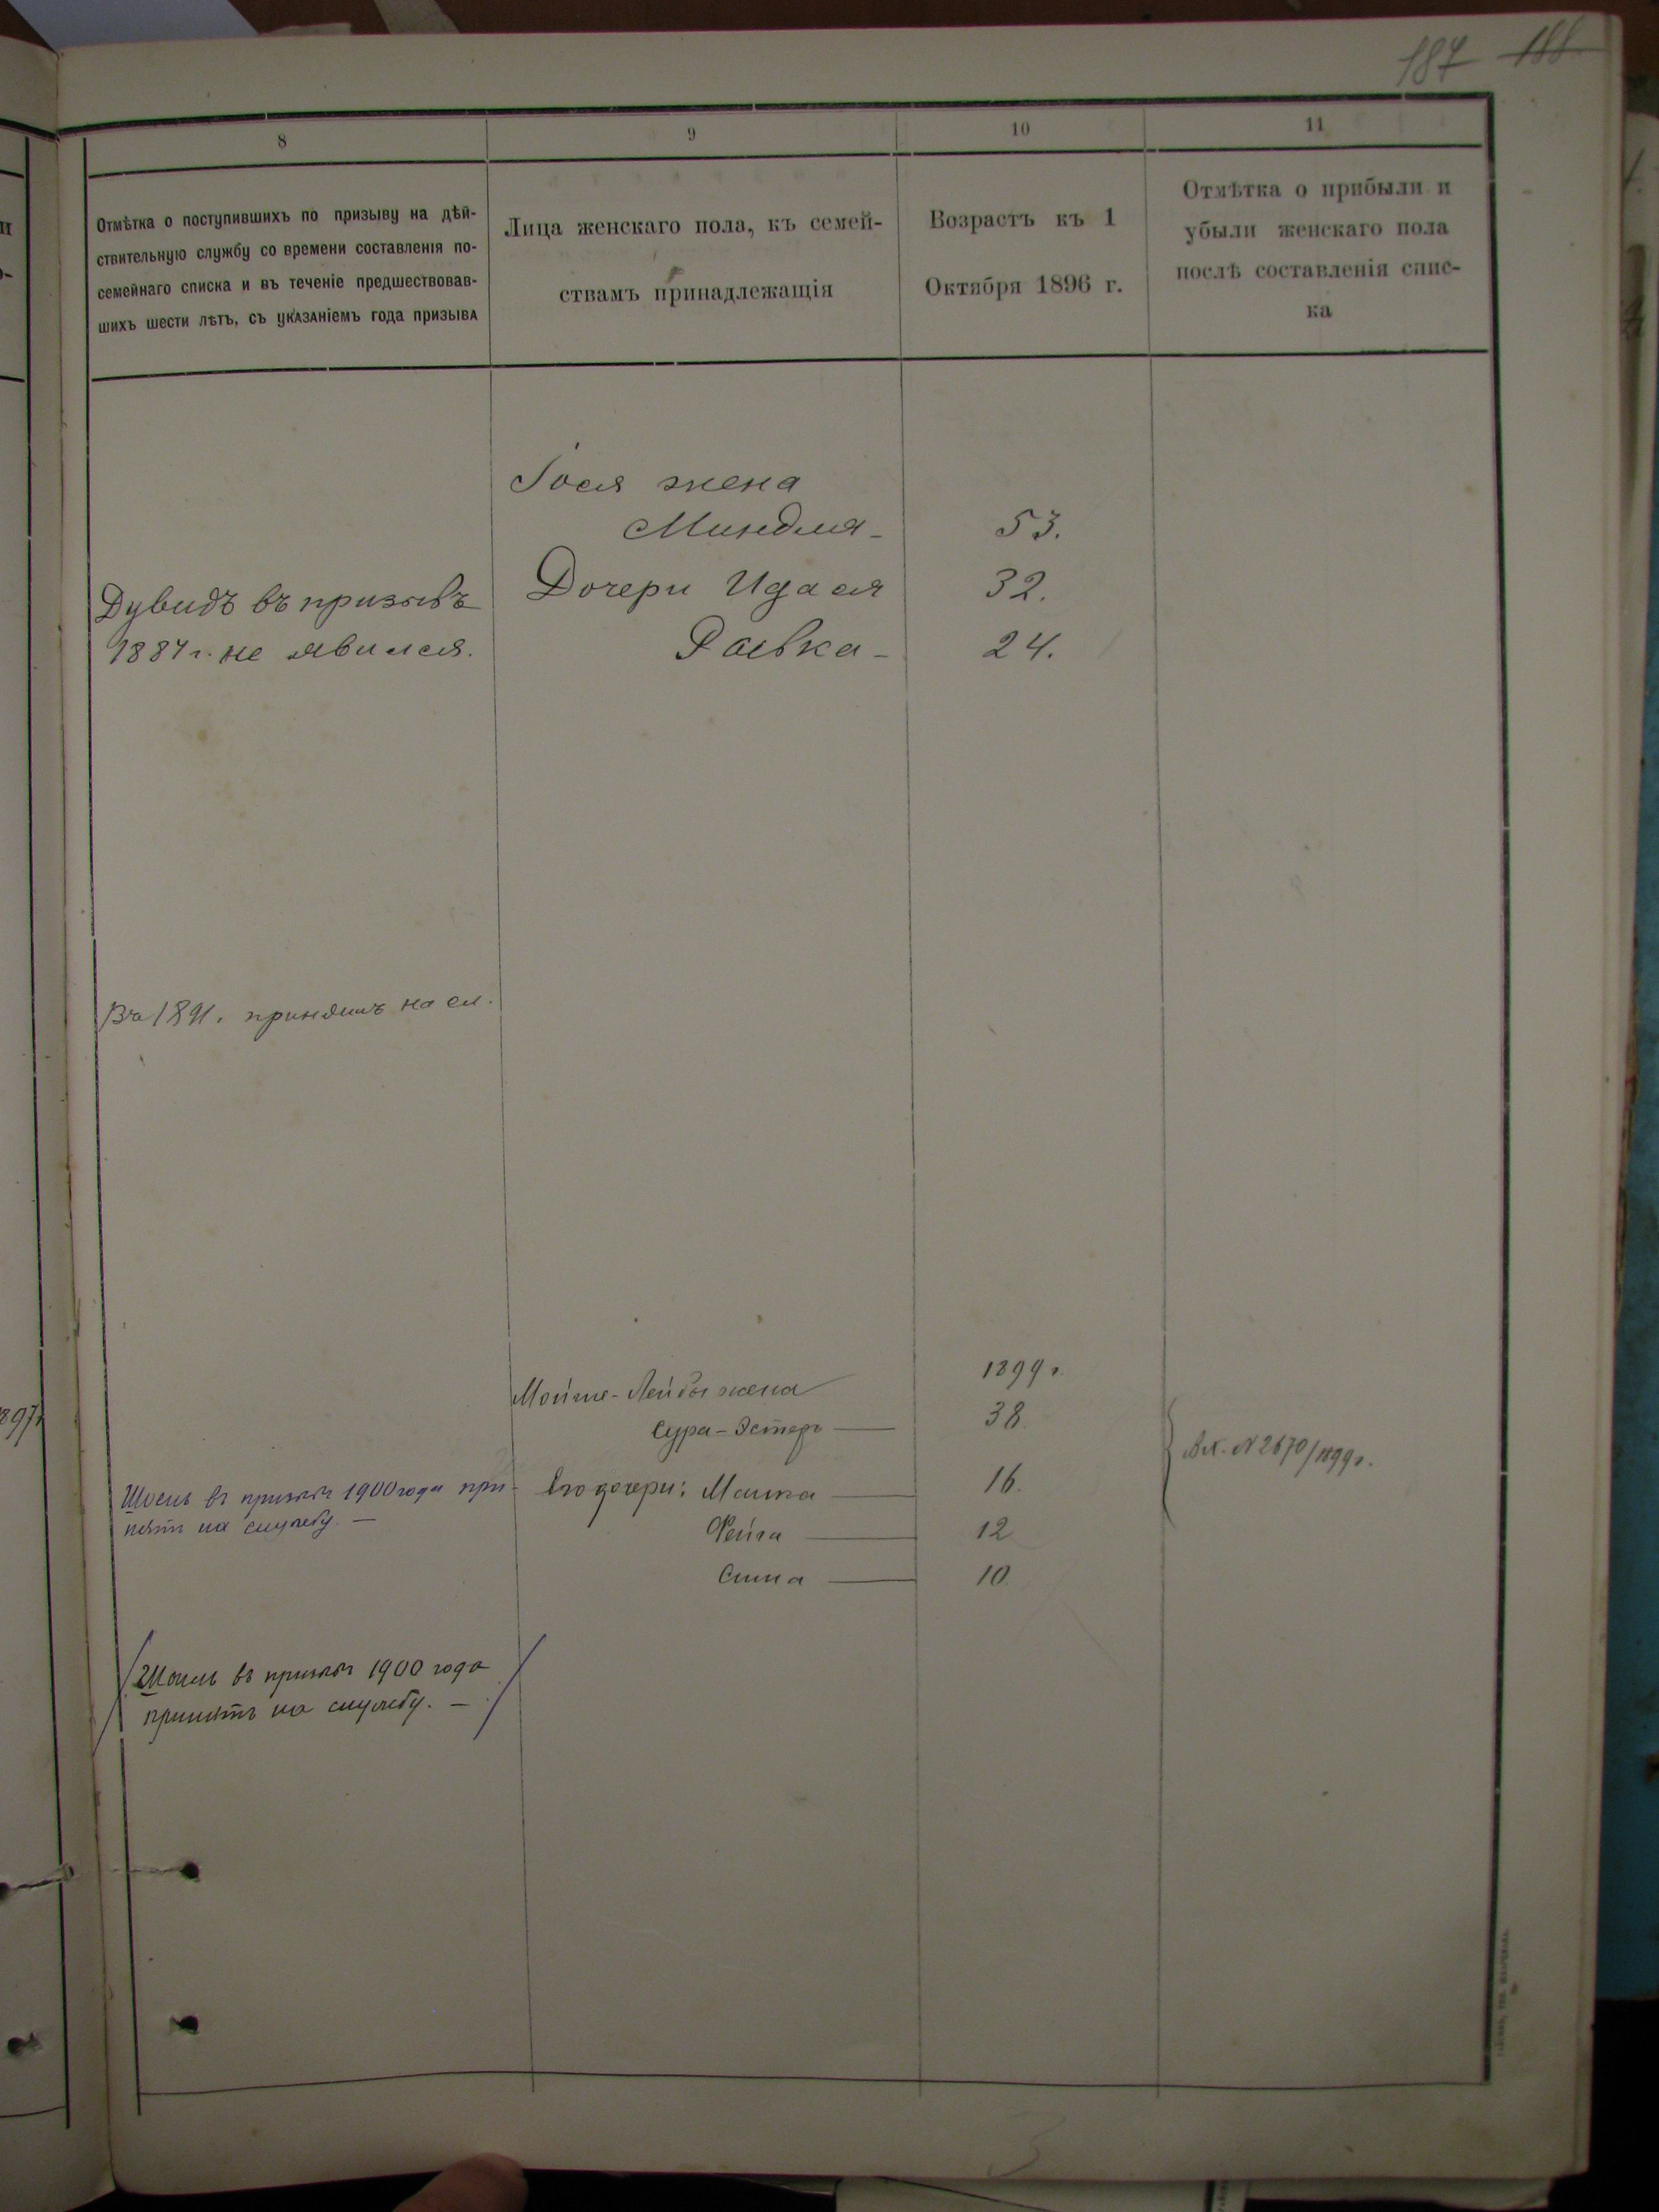 187 188
8
9
10
11
Отмѣтка о поступившихъ по призыву на дѣй-
ствительную службу со времени составленія по-
семейнаго списка и въ теченіе предшествовав-
шихъ шести лѣтъ, съ указаніемъ года призыва
Лица женскаго пола, къ семей-
ствамъ принадлежащія
Возрастъ къ 1
Октября 1896 г.
Отмѣтка о прибыли и
убыли женскаго пола
послѣ составленія спис-
ка
жена
Миндля - 53.
Дочери 32.
Дувидъ въ призывъ
1884 г. не явился.
Раввка - 24.
Въ 1891. принятъ на сл.
1899 г.
Мойше-Лейбы жена
Сура-Эстеръ — 38.
897
Его дочери: Малка — 16.
Фейга — 12
Сима — 10.
№ 2670/1899 г.
въ призывъ 1900 года при-
нятъ на службу. —
въ призывъ 1900 года
принятъ на службу. —